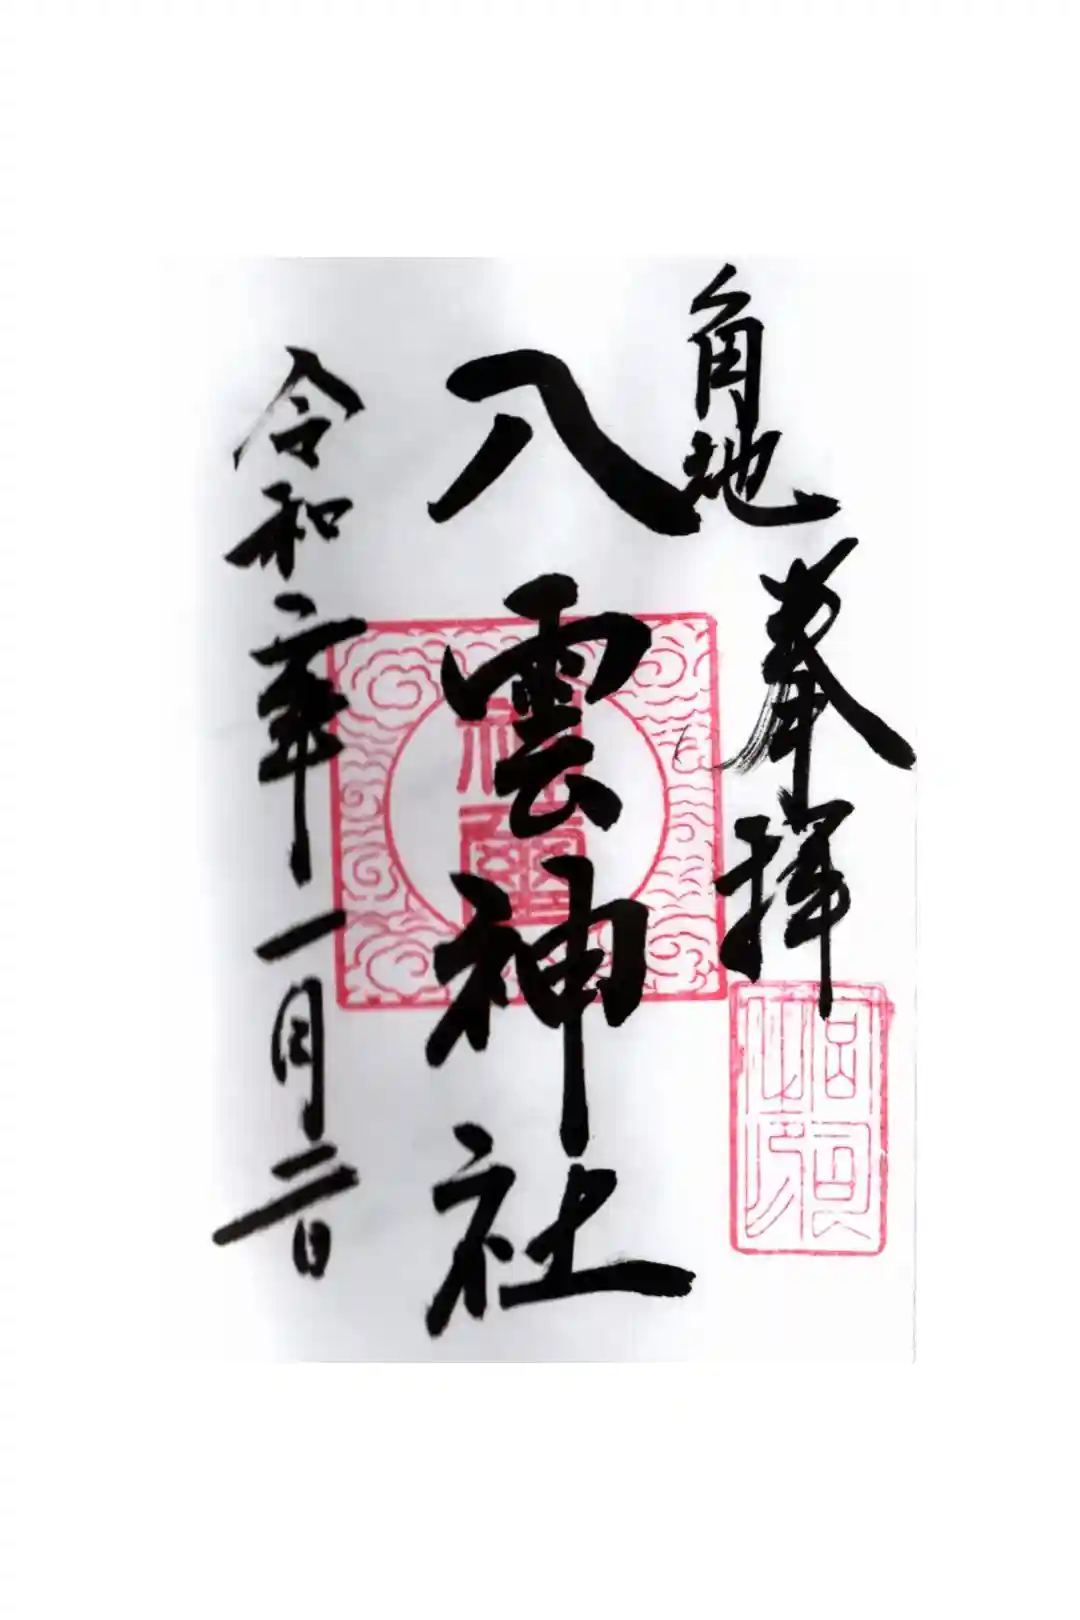 角地 奉拝
八雲神社
令和二年一月二日